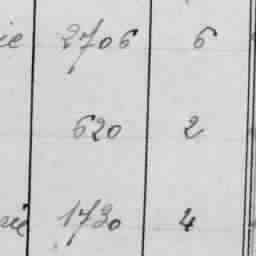 ie 2706 6
620 2
rie 1730 4